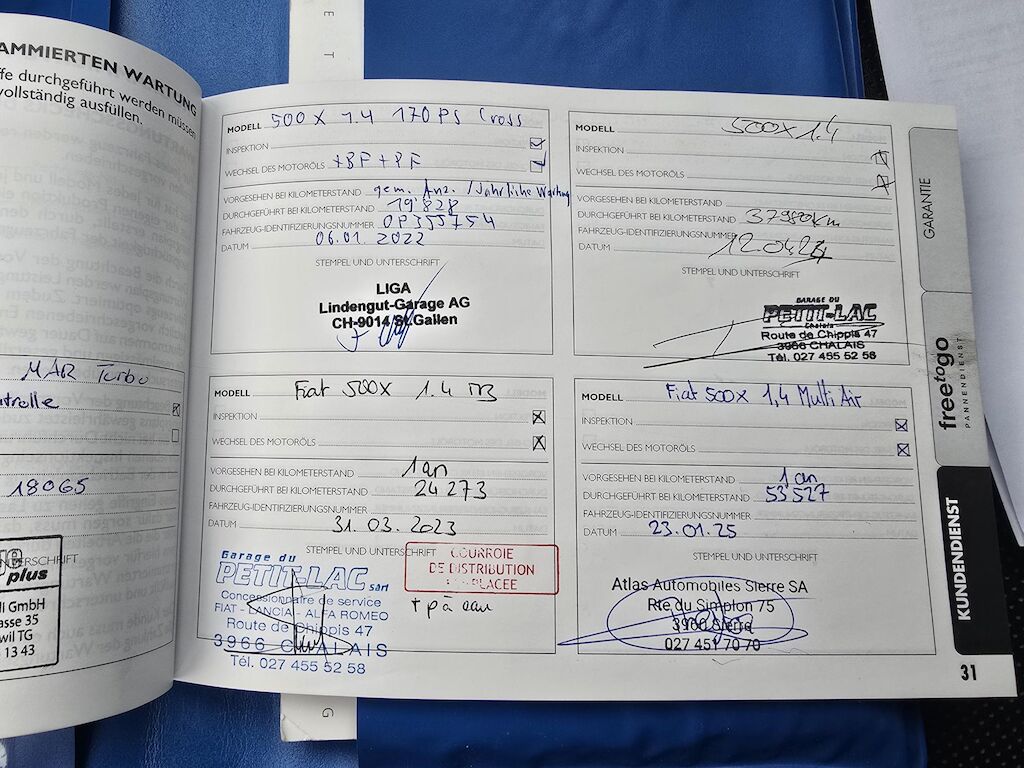 AMMIERTEN WARTUNG
ffe durchgeführt werden müssen
vollständig ausfüllen.
MAR Turbo
ntrolle
18065
plus
ll GmbH
asse 35
wil TG
13 43
MODELL 500 X 1.4 170 PS Cross
INSPEKTION
WECHSEL DES MOTORÖLS +BF + PF
VORGESEHEN BEI KILOMETERSTAND gem. Anz. / Jährliche Wartung
DURCHGEFÜHRT BEI KILOMETERSTAND 19'828
FAHRZEUG-IDENTIFIZIERUNGSNUMMER 0P355754
DATUM 06.01.2022
STEMPEL UND UNTERSCHRIFT
LIGA
Lindengut-Garage AG
CH-9014 St.Gallen
MODELL 500X 1.4
INSPEKTION
WECHSEL DES MOTORÖLS
VORGESEHEN BEI KILOMETERSTAND
DURCHGEFÜHRT BEI KILOMETERSTAND 37980km
FAHRZEUG-IDENTIFIZIERUNGSNUMMER
DATUM 12.04.24
STEMPEL UND UNTERSCHRIFT
GARAGE DU
PETIT-LAC
Chalais
Route de Chippis 47
3966 CHALAIS
Tél. 027 455 52 58
MODELL Fiat 500X 1.4
INSPEKTION
WECHSEL DES MOTORÖLS
VORGESEHEN BEI KILOMETERSTAND 1 an
DURCHGEFÜHRT BEI KILOMETERSTAND 24 273
FAHRZEUG-IDENTIFIZIERUNGSNUMMER
DATUM 31.03.2023
STEMPEL UND UNTERSCHRIFT
Garage du
PETIT-LAC sàrl
Concessionnaire de service
FIAT - LANCIA - ALFA ROMEO
Route de Chippis 47
3966 CHALAIS
Tél. 027 455 52 58
COURROIE
DE DISTRIBUTION
REMPLACEE
MODELL Fiat 500X 1,4 Multi Air
INSPEKTION
WECHSEL DES MOTORÖLS
VORGESEHEN BEI KILOMETERSTAND 1 an
DURCHGEFÜHRT BEI KILOMETERSTAND 53'527
FAHRZEUG-IDENTIFIZIERUNGSNUMMER
DATUM 23.01.25
STEMPEL UND UNTERSCHRIFT
Atlas Automobiles Sierre SA
Rte du Simplon 75
3960 Sierre
027 451 70 70
GARANTIE
freetogo
PANNENDIENST
KUNDENDIENST
31
E T
G